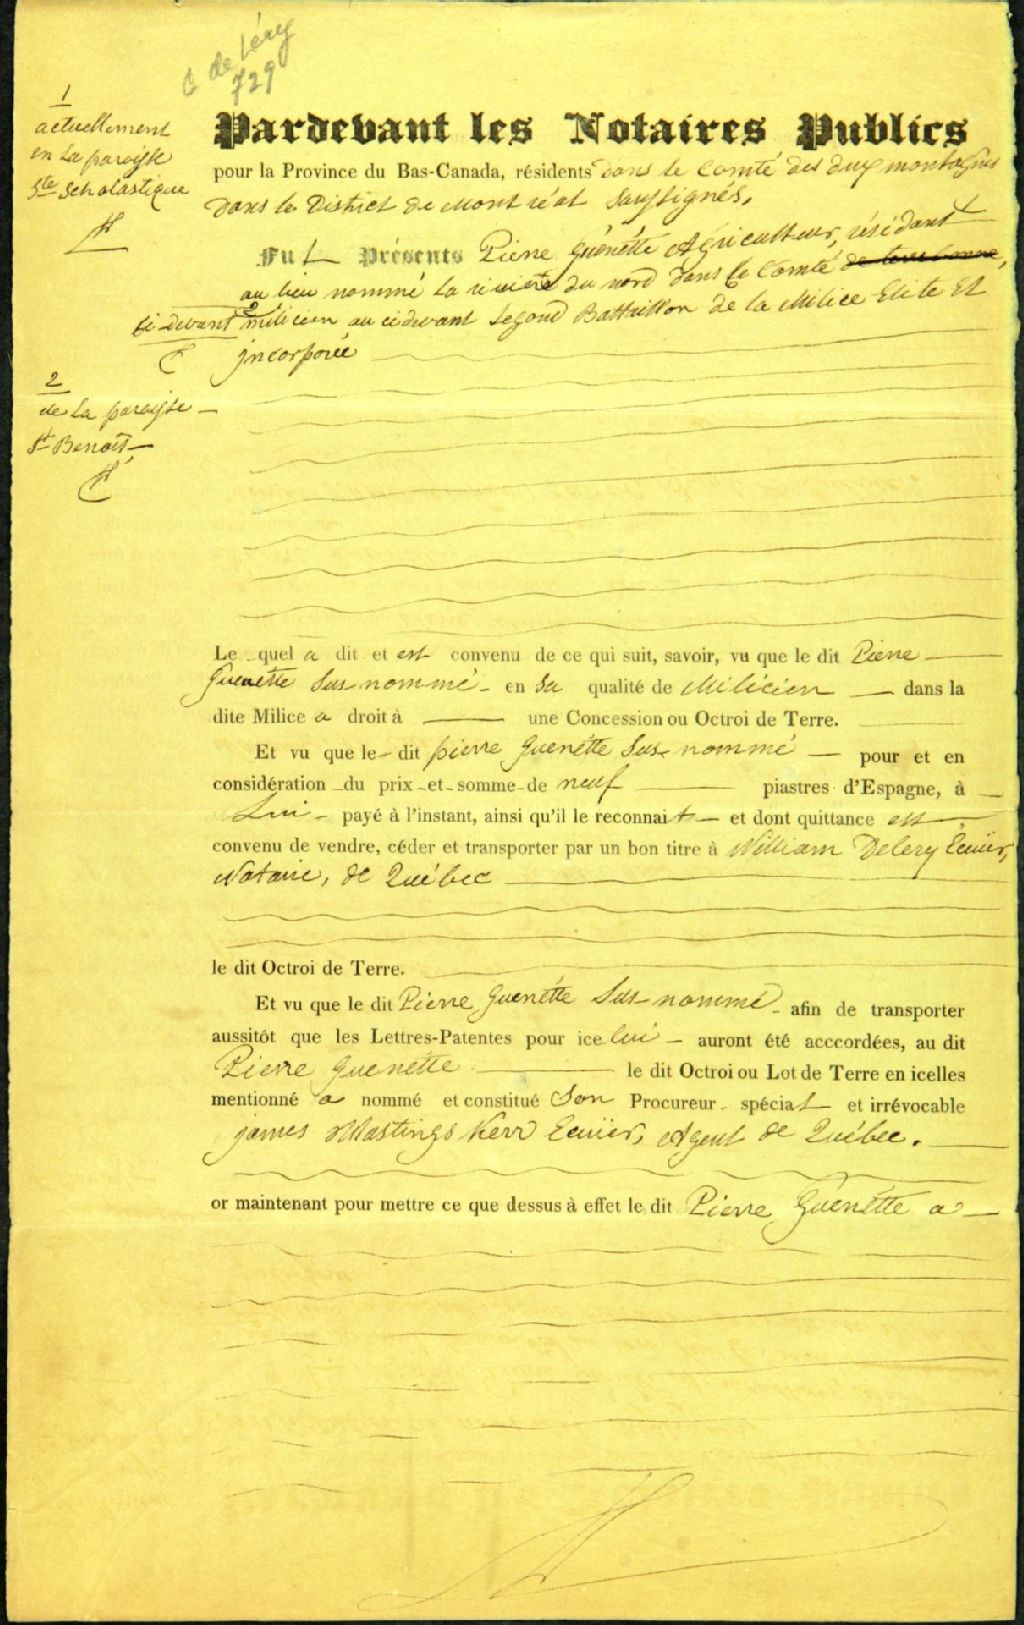 C de Léry
729
1
actuellement
en La paroisse
Ste Scholastique
Pardevant les Notaires Publics
pour la Province du Bas-Canada, résidents dans le Comté des deux montagnes
dans le District de Mont réal Soussignés,
Fut Présents Pierre Guénétte Agriculteur, résidant 1
au lieu nommé La riviere du nord dans le Comté de
ci-devant 2 milicien au cidevant Segond Battaillon de la Milice Elite Et
jncorporée
2
de La paroisse
St Benoit
Le quel a dit et est convenu de ce qui suit, savoir, vu que le dit Pierre
Guenétte Sus nommé en Sa qualité de Milicien dans la
dite Milice a droit à une Concession ou Octroi de Terre.
Et vu que le dit pierre Guenétte Sus nommé pour et en
considération du prix et somme de neuf piastres d'Espagne, à
Lui payé à l'instant, ainsi qu'il le reconnait et dont quittance est
convenu de vendre, céder et transporter par un bon titre à William Delery Ecuiier,
Notaire, de Québec
le dit Octroi de Terre.
Et vu que le dit Pierre Guenétte Sus nommé afin de transporter
aussitôt que les Lettres-Patentes pour icelui auront été acccordées, au dit
Pierre Guenétte le dit Octroi ou Lot de Terre en icelles
mentionné a nommé et constitué Son Procureur spécial et irrévocable
james Hastings Kerr Ecuiier, Agent de Québec.
or maintenant pour mettre ce que dessus à effet le dit Pierre Guénétte a